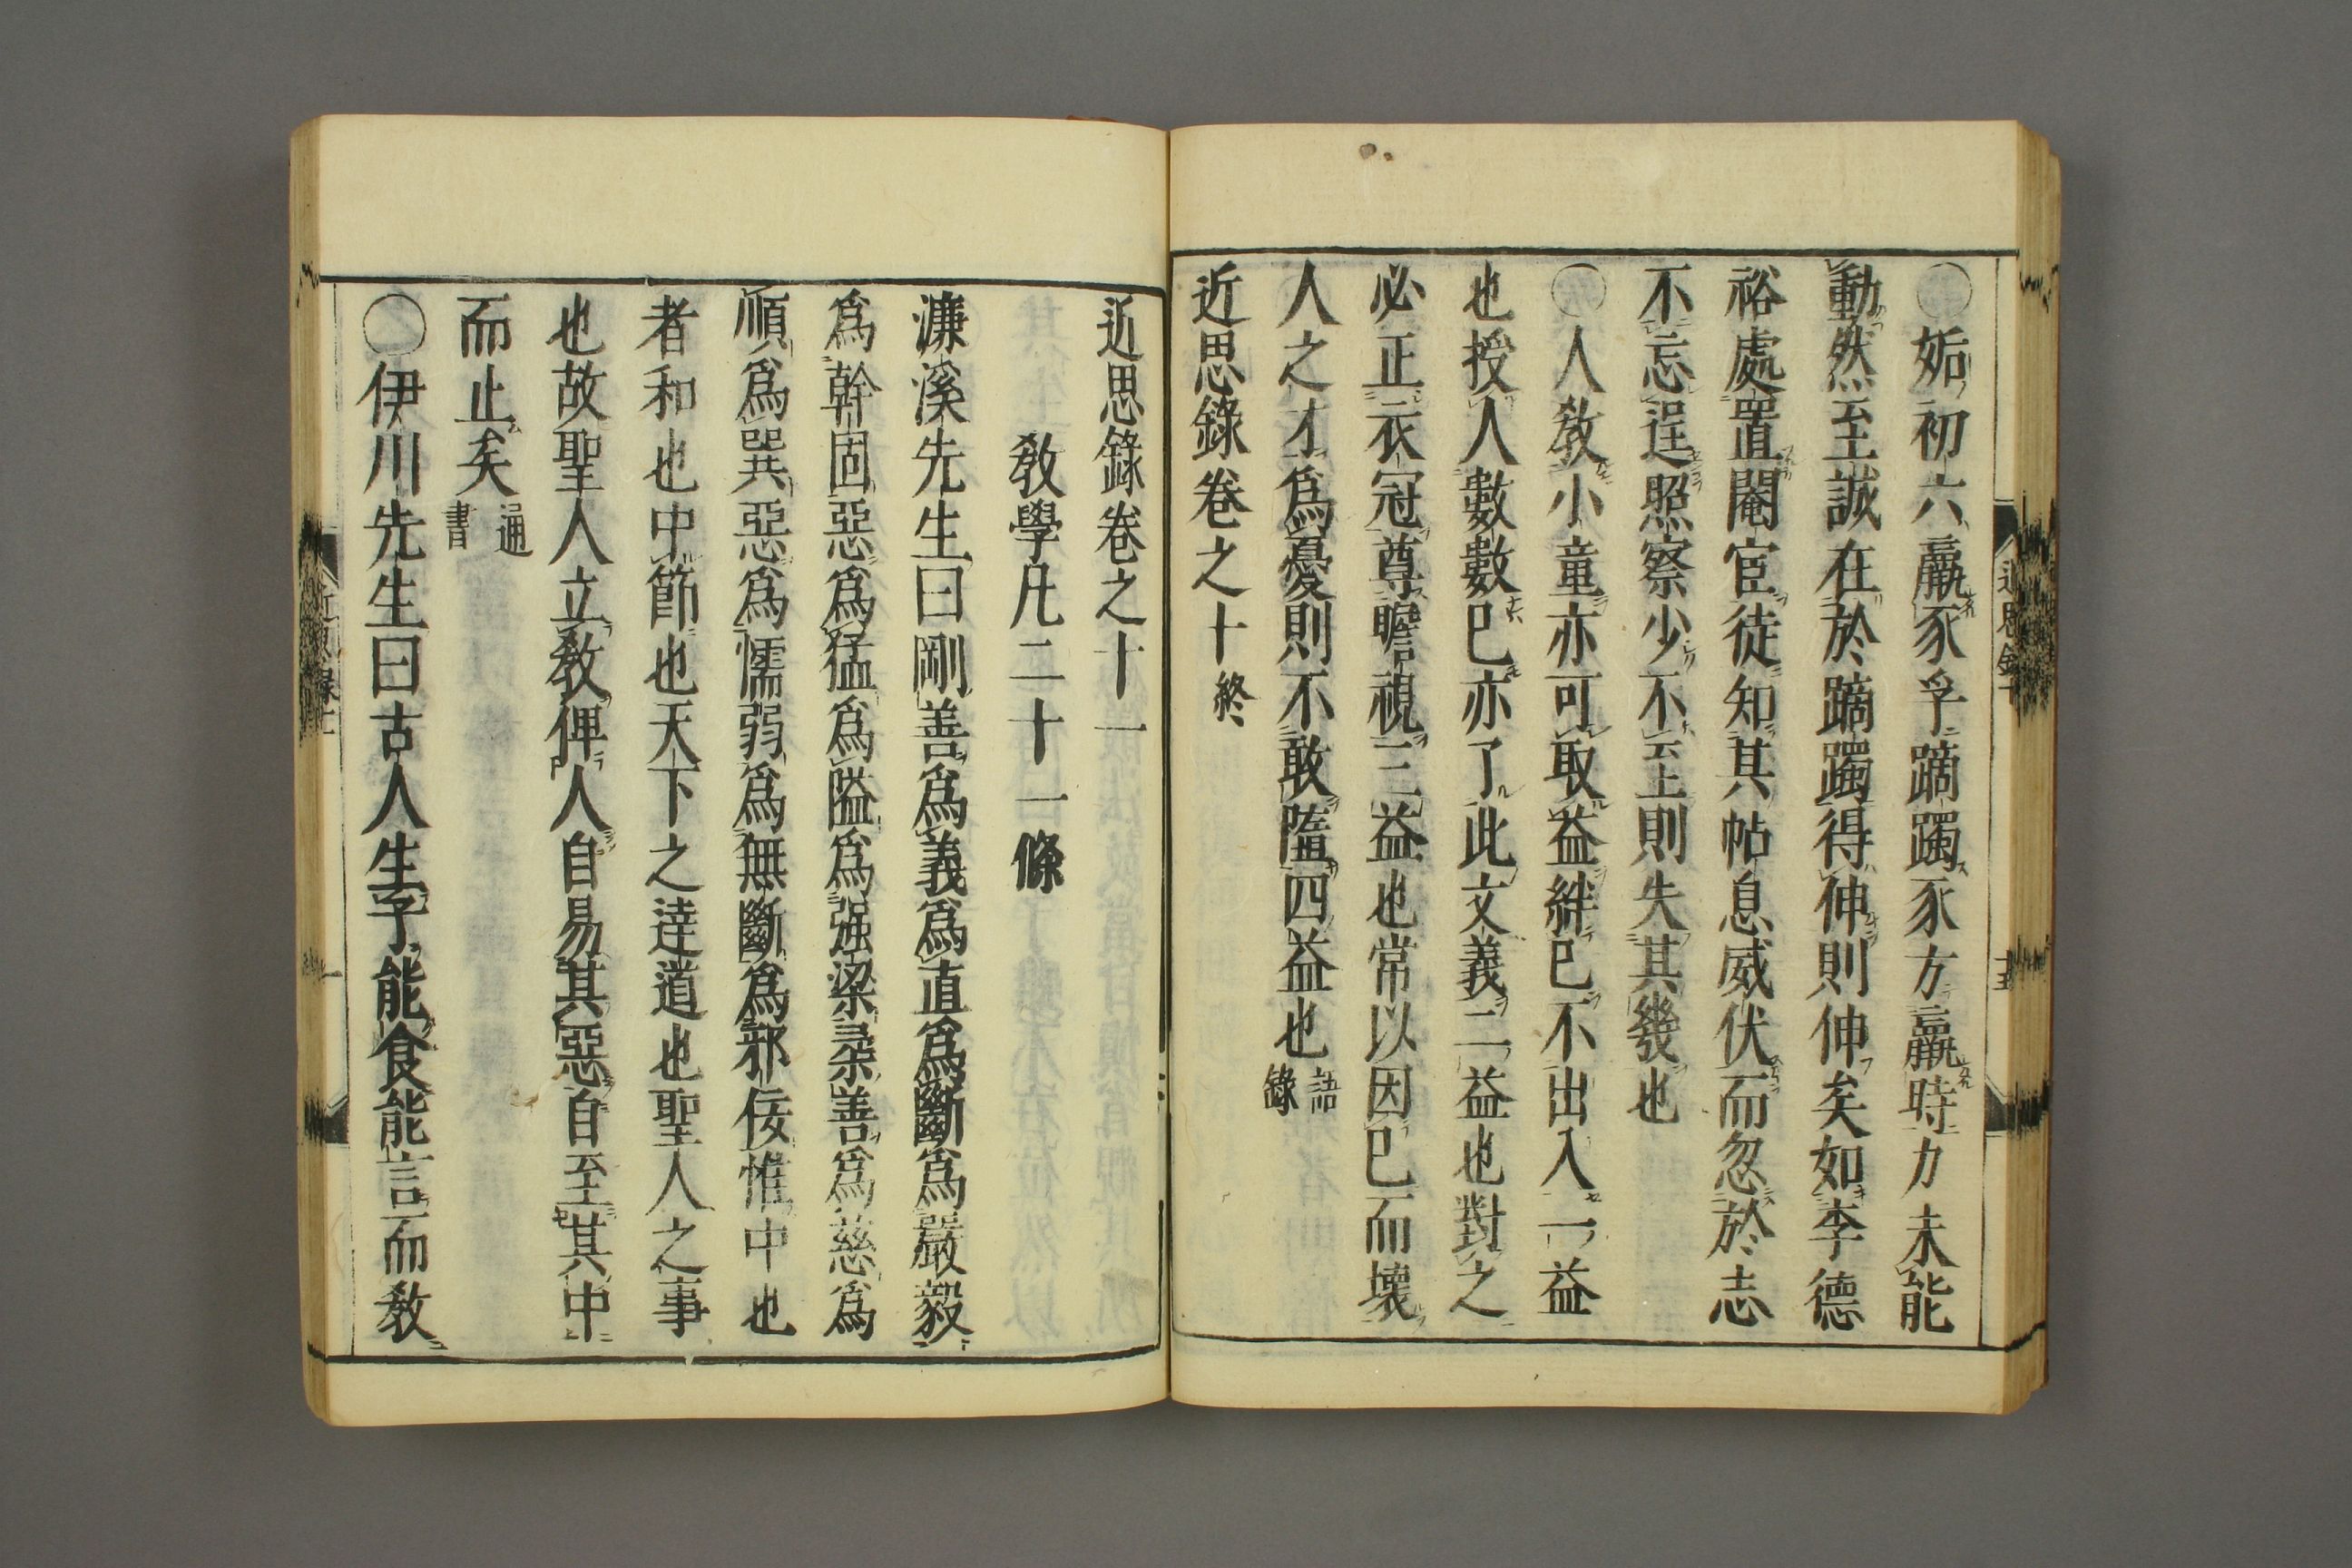 〇姤初六羸豕孚蹢躅豕方羸時力未能
動然至誠在於蹢躅得伸則伸矣如李德
裕處置閹宦徒知其帖息威伏而忽於志
不忘逞照察少不至則失其幾也
〇人教小童亦可取益絆己不出入一益
也授人數數己亦了此文義二益也對之
必正衣冠尊瞻視三益也常以因己而壞
人之才爲憂則不敢隳四益也語錄
近思錄卷之十終
近思錄卷之十一
教學凡二十一條
濂溪先生曰剛善爲義爲直爲斷爲嚴毅
爲幹固惡爲猛爲隘爲强梁柔善爲慈爲
順爲巽惡爲懦弱爲無斷爲邪佞惟中也
者和也中節也天下之達道也聖人之事
也故聖人立教俾人自易其惡自至其中
而止矣通書
〇伊川先生曰古人生子能食能言而教